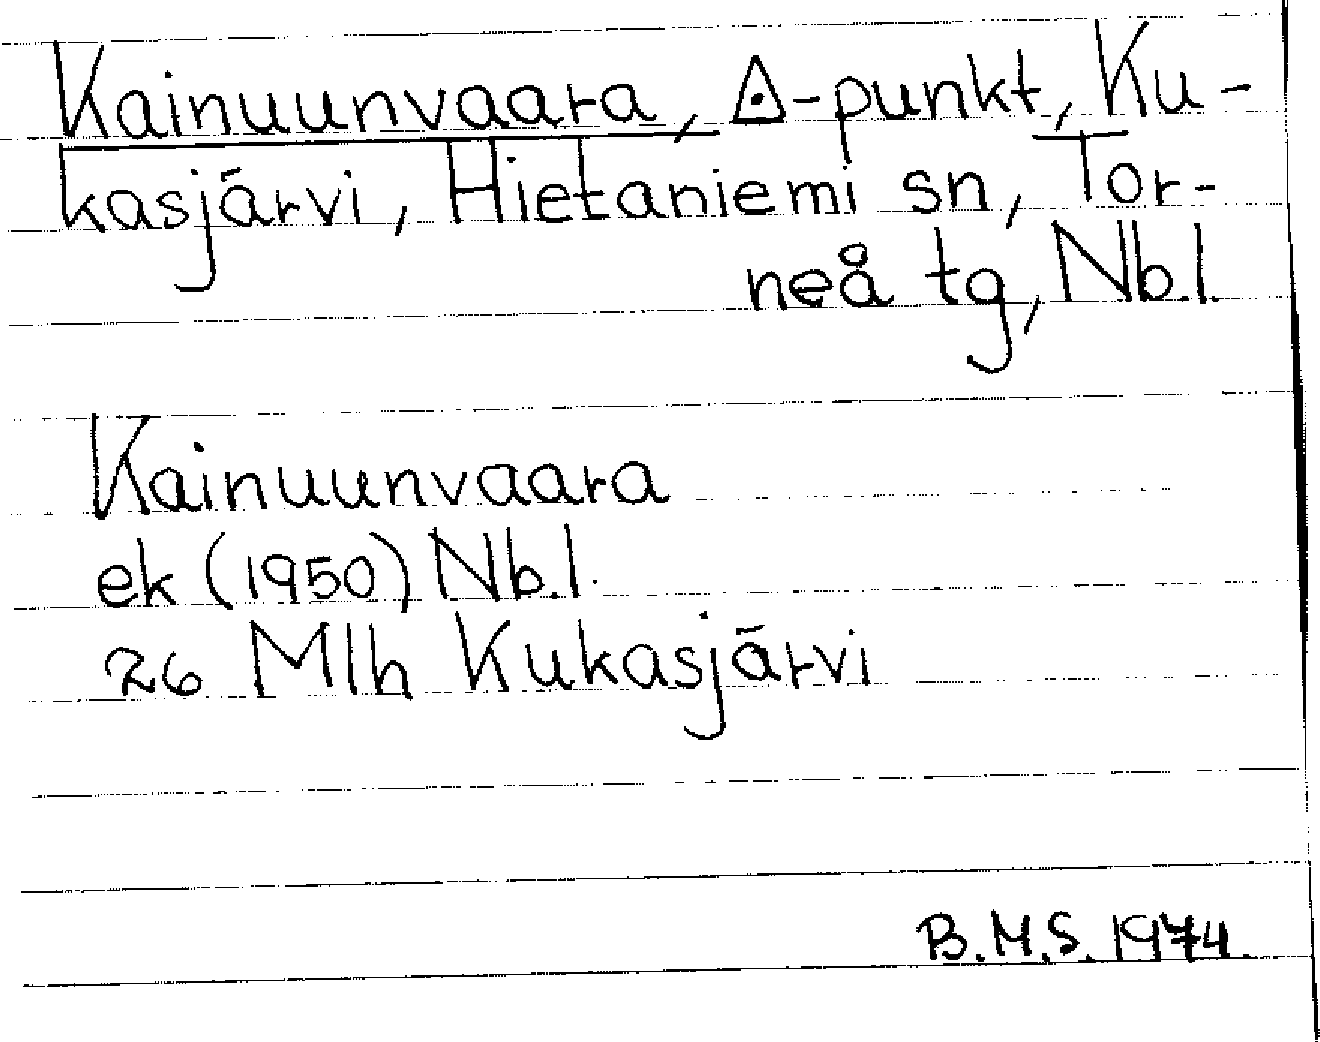 Kainuunvaara, ◬-punkt, Ku-
kasjärvi, Hietaniemi sn, Tor-
neå tg, Nb.l.
Kainuunvaara
ek (1950) Nb.l.
26 Mlh Kukasjärvi
B.M.S. 1974.